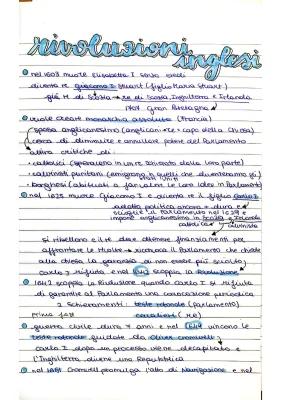 rivoluzioni
inglesi
nel 1603 muore Elisabetta I senza eredi
diventa re giacomo I Stuart (figlio Maria Stuart)
già re di Scozia → re di Scozia, Inghilterra e Irlanda
1707 Gran Bretagna
vuole creare monarchia assoluta (Francia)
sposa anglicanesimo (anglican → re = capo della Chiesa)
cerca di diminuire e annullare potere del Parlamento
attira critiche di:
cattolici (speravano in un re schierato dalla loro parte)
calvinisti puritani (emigrano in quelli che diventeranno gli
Stati Uniti
borghesi (abituati a far valere le loro idee in Parlamento)
nel 1625 muore Giacomo I e diventa re il figlio Carlo I
adotta politica ancora + dura e
scioglie il Parlamento nel 1629 e
impone anglicanesimo in Scozia e Irlanda
cattolica calvinista
si ribellano e il re deve ottenere finanziamenti per
affrontare le rivolte → riconvoca il Parlamento che chiede
alla chiesa la garanzia di non essere più sciolto
Carlo I rifiuta e nel 1642 scoppia la rivoluzione
1642 scoppia la Rivoluzione quando Carlo I si rifiuta
di garantire al Parlamento una convocazione periodica
2 schieramenti: teste rotonde (Parlamento)
prima fase cavalieri (re)
guerra civile dura 7 anni e nel 1649 vincono le
teste rotonde guidate da Oliver Cromwell
Carlo I dopo un processo viene decapitato e
l'Inghilterra diviene una Repubblica
nel 1651 Cromwell promulga l'atto di Navigazione e nel